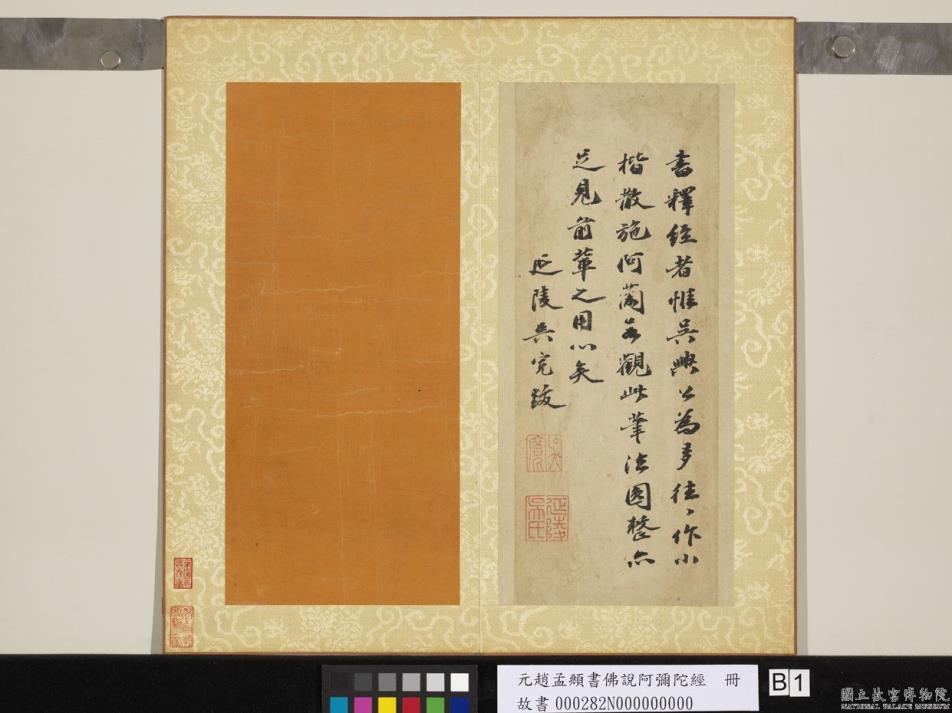 書釋經者惟吳興公為多往〻作小
楷散施何蘭若觀此筆法圓整亦
足見前輩之用心矣
延陵吳寬跋
吳寬
延陵吳氏
元趙孟頫書佛說阿彌陀經 冊
故書 000282N000000000
B1
國立故宮博物院
NATIONAL PALACE MUSEUM